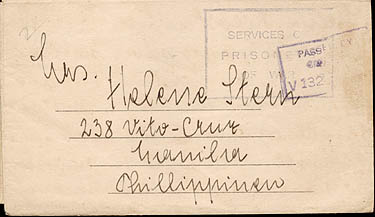 SERVICES
PRISON
PASS
V 132
Mrs.
Helene Stern
238 Vito-Cruz
Manila
Phillippinen